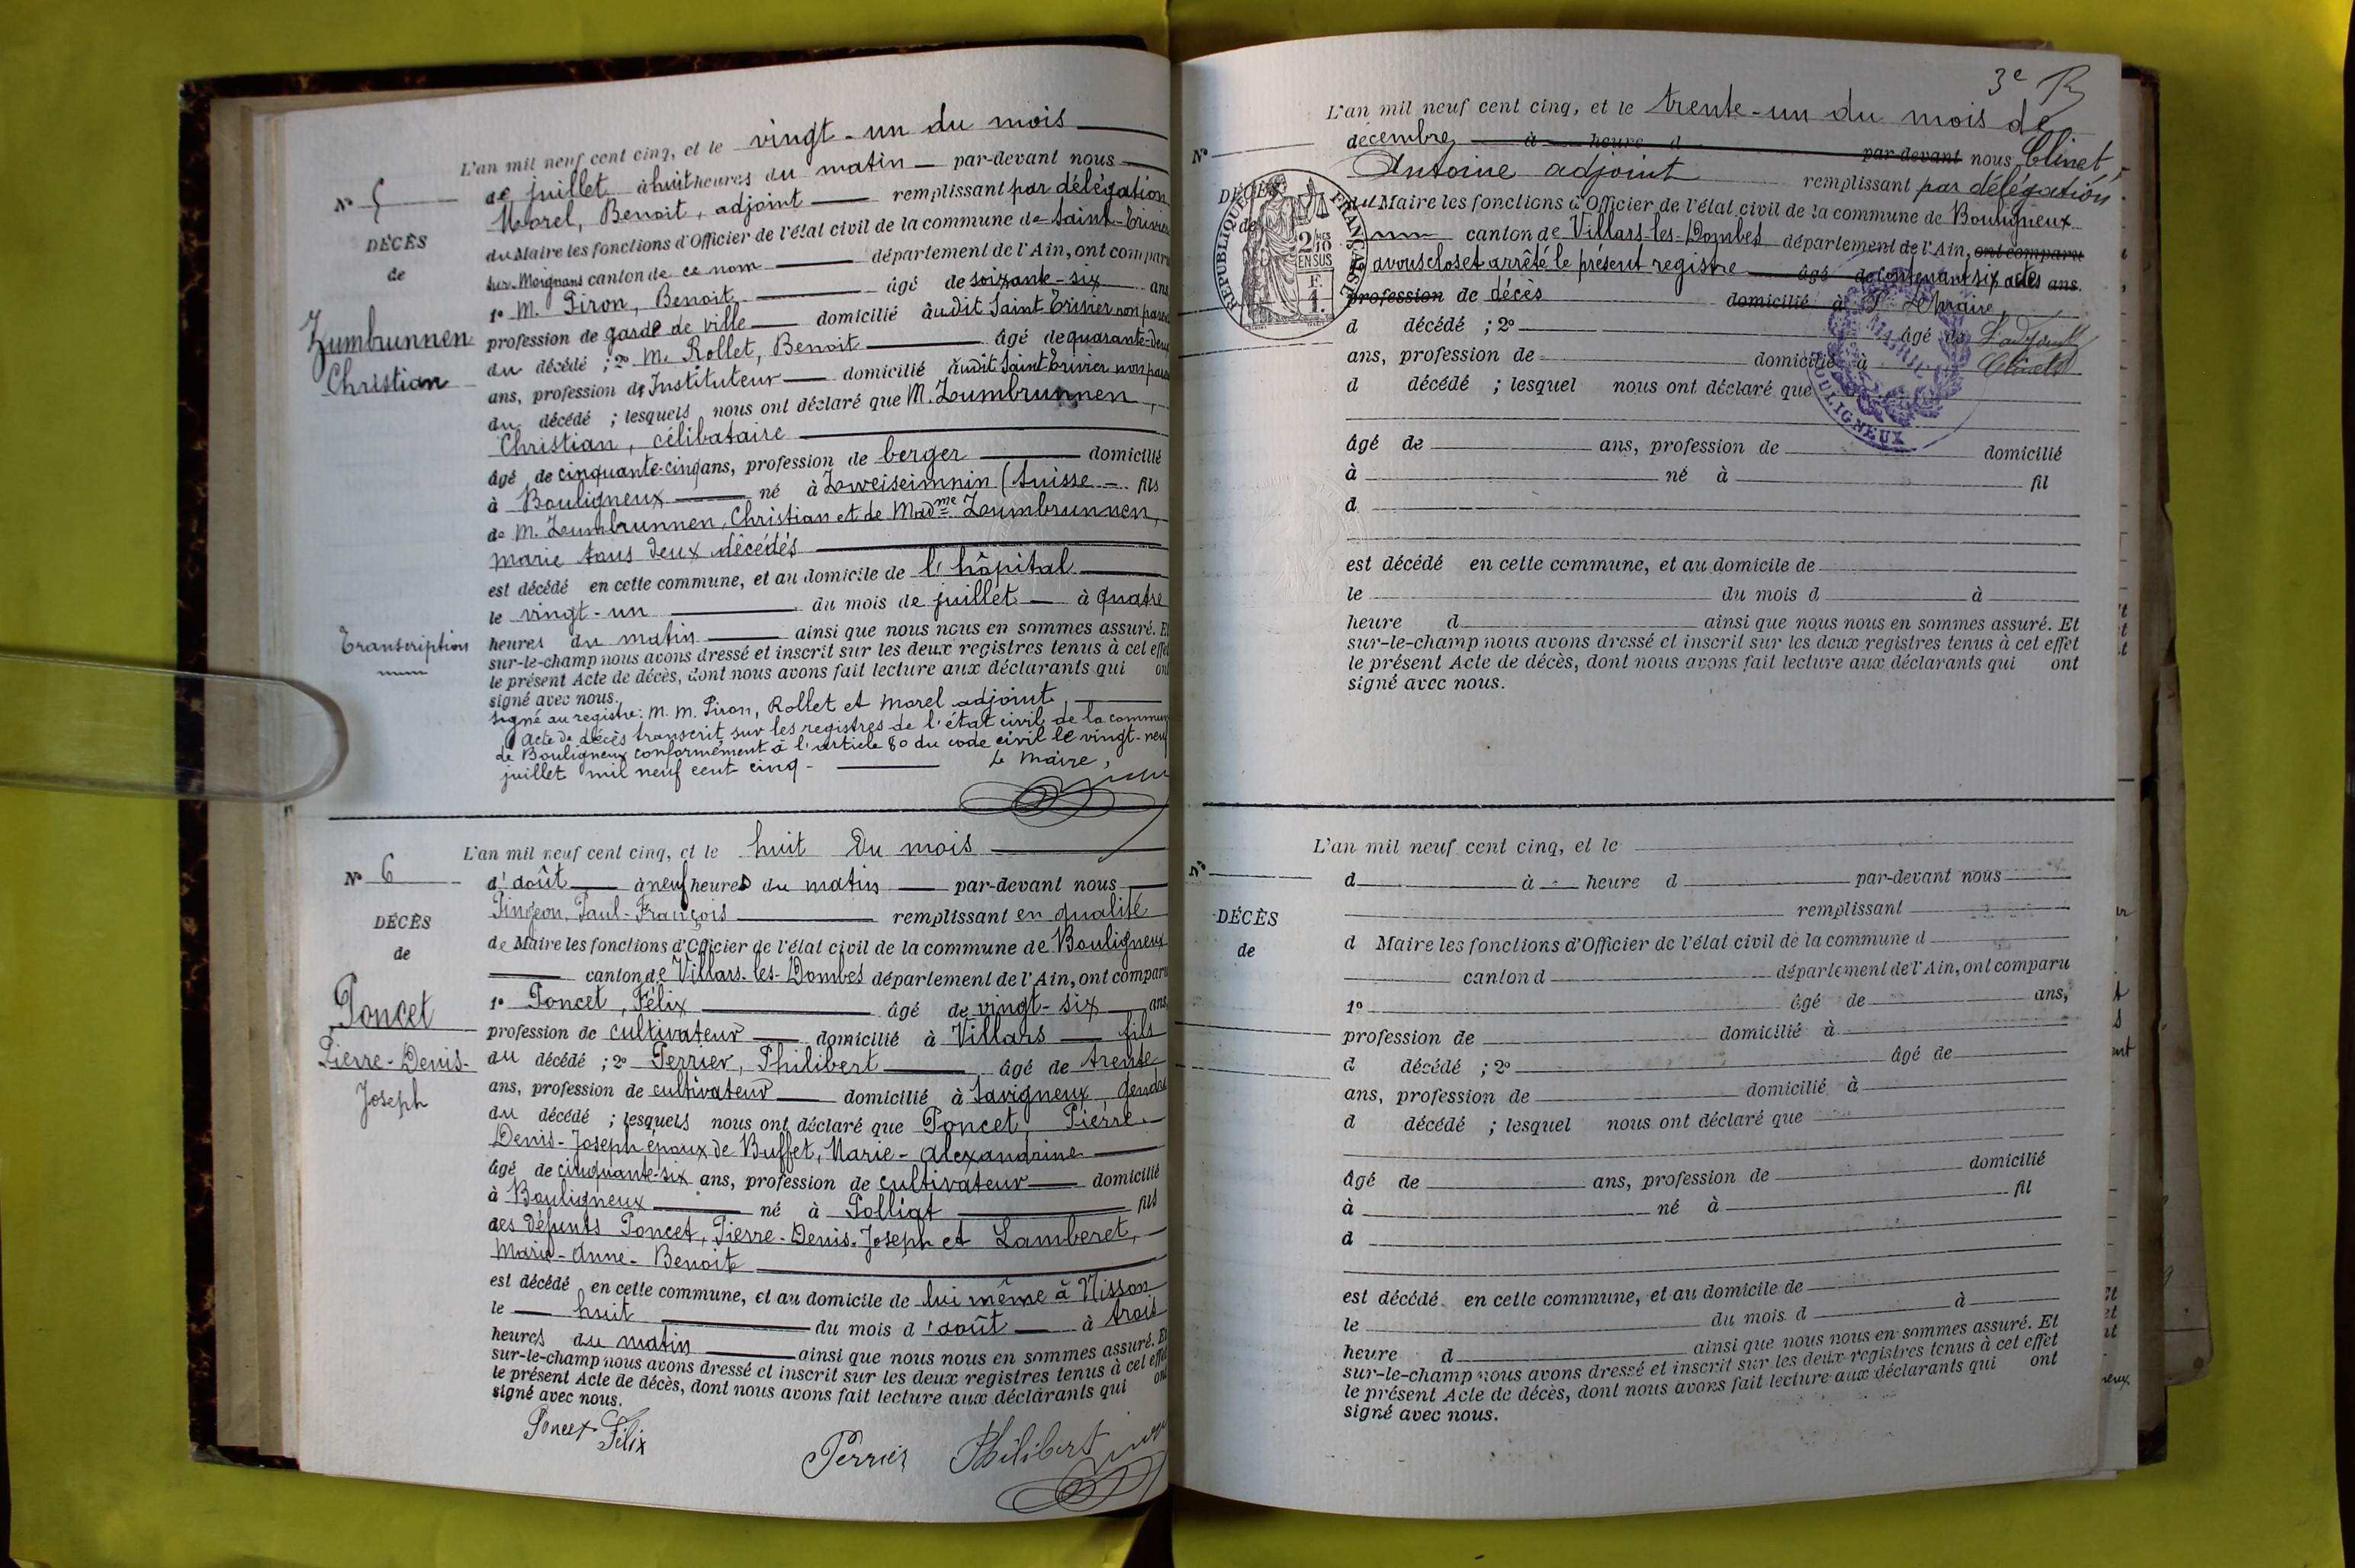 L'an mil neuf cent cinq, et le vingt-un du mois
Nº 5
de juillet à huit heures du matin par-devant nous
Morel, Benoit, adjoint remplissant par délégation
DÉCÈS
du Maire les fonctions d'Officier de l'état civil de la commune de Saint-Trivier
de
sur-Moignans canton de ce nom département de l'Ain, ont comparu
1º M. Piron, Benoit âgé de soixante-six ans
Zumbrunnen
profession de garde de ville domicilié audit Saint Trivier non parent
du décédé ; 2º M. Rollet, Benoit âgé de quarante-deux
Christian
ans, profession de Instituteur domicilié audit Saint-Trivier non parent
du décédé ; lesquels nous ont déclaré que M. Zumbrunnen,
Christian, célibataire
âgé de cinquante-cinq ans, profession de berger domicilié
à Bouligneux né à Zweiseimnin (Suisse fils
de M. Zumbrunnen, Christian et de Madme Zumbrunnen,
marie tous deux décédés
est décédé en cette commune, et au domicile de l'hôpital
le vingt-un du mois de juillet à quatre
Transcription
heures du matin ainsi que nous nous en sommes assuré. Et
sur-le-champ nous avons dressé et inscrit sur les deux registres tenus à cet effet
le présent Acte de décès, dont nous avons fait lecture aux déclarants qui ont
signé avec nous.
signé au registre: M. M. Piron, Rollet et Morel adjoint
Acte de décès transcrit sur les registres de l'état civil de la commune
de Bouligneux conformément à l'article 80 du code civil le vingt-neuf
juillet mil neuf cent cinq - Le Maire,
L'an mil neuf cent cinq, et le huit du mois
Nº 6
d'août à neuf heures du matin par-devant nous
Pingeon, Paul-François remplissant en qualité
DÉCÈS
de Maire les fonctions d'Officier de l'état civil de la commune de Bouligneux
de
canton de Villars-les-Dombes département de l'Ain, ont comparu
1º Poncet, Félix âgé de vingt-six ans
Poncet
profession de cultivateur domicilié à Villars fils
Pierre-Denis-
du décédé ; 2º Perrier, Philibert âgé de trente
Joseph
ans, profession de cultivateur domicilié à Savigneux gendre
du décédé ; lesquels nous ont déclaré que Poncet, Pierre-
Denis-Joseph époux de Buffet, Marie-Alexandrine
âgé de cinquante-six ans, profession de cultivateur domicilié
à Bouligneux né à Polliat fils
des défunts Poncet, Pierre-Denis-Joseph et Lamberet,
Marie-Anne-Benoite
est décédé en cette commune, et au domicile de lui même à Nisson
le huit du mois d'août à trois
heures du matin ainsi que nous nous en sommes assuré. Et
sur-le-champ nous avons dressé et inscrit sur les deux registres tenus à cet effet
le présent Acte de décès, dont nous avons fait lecture aux déclarants qui ont
signé avec nous.
Poncet Félix
Perrier Philibert
3e
L'an mil neuf cent cinq, et le trente-un du mois de
Nº
décembre à heure d par-devant nous Clinet,
Antoine adjoint remplissant par délégation
DÉCÈS
de
RÉPUBLIQUE FRANÇAISE
2/10 EN SUS
F. 1.
du Maire les fonctions d'Officier de l'état civil de la commune de Bouligneux
canton de Villars-les-Dombes département de l'Ain, ont comparu
avons clos et arrêté le présent registre âgé de contenant six actes ans.
profession de décès domicilié à P. le Maire,
d décédé ; 2º âgé de L'adjoint
ans, profession de domicilié à Clinet
MAIRIE
BOULIGNEUX
d décédé ; lesquel nous ont déclaré que
âgé de ans, profession de domicilié
à né à fil
d
est décédé en cette commune, et au domicile de
le du mois d à
heure d ainsi que nous nous en sommes assuré. Et
sur-le-champ nous avons dressé et inscrit sur les deux registres tenus à cet effet
le présent Acte de décès, dont nous avons fait lecture aux déclarants qui ont
signé avec nous.
L'an mil neuf cent cinq, et le
Nº
d à heure d par-devant nous
remplissant
DÉCÈS
d Maire les fonctions d'Officier de l'état civil de la commune d
de
canton d département de l'Ain, ont comparu
1º âgé de ans,
profession de domicilié à
d décédé ; 2º âgé de
ans, profession de domicilié à
d décédé ; lesquel nous ont déclaré que
âgé de ans, profession de domicilié
à né à fil
d
est décédé en cette commune, et au domicile de
le du mois d à
heure d ainsi que nous nous en sommes assuré. Et
sur-le-champ nous avons dressé et inscrit sur les deux registres tenus à cet effet
le présent Acte de décès, dont nous avons fait lecture aux déclarants qui ont
signé avec nous.